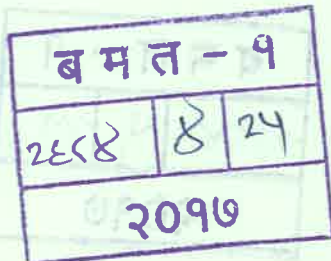 ब म त - १
२६९४ ४ २५
२०१७